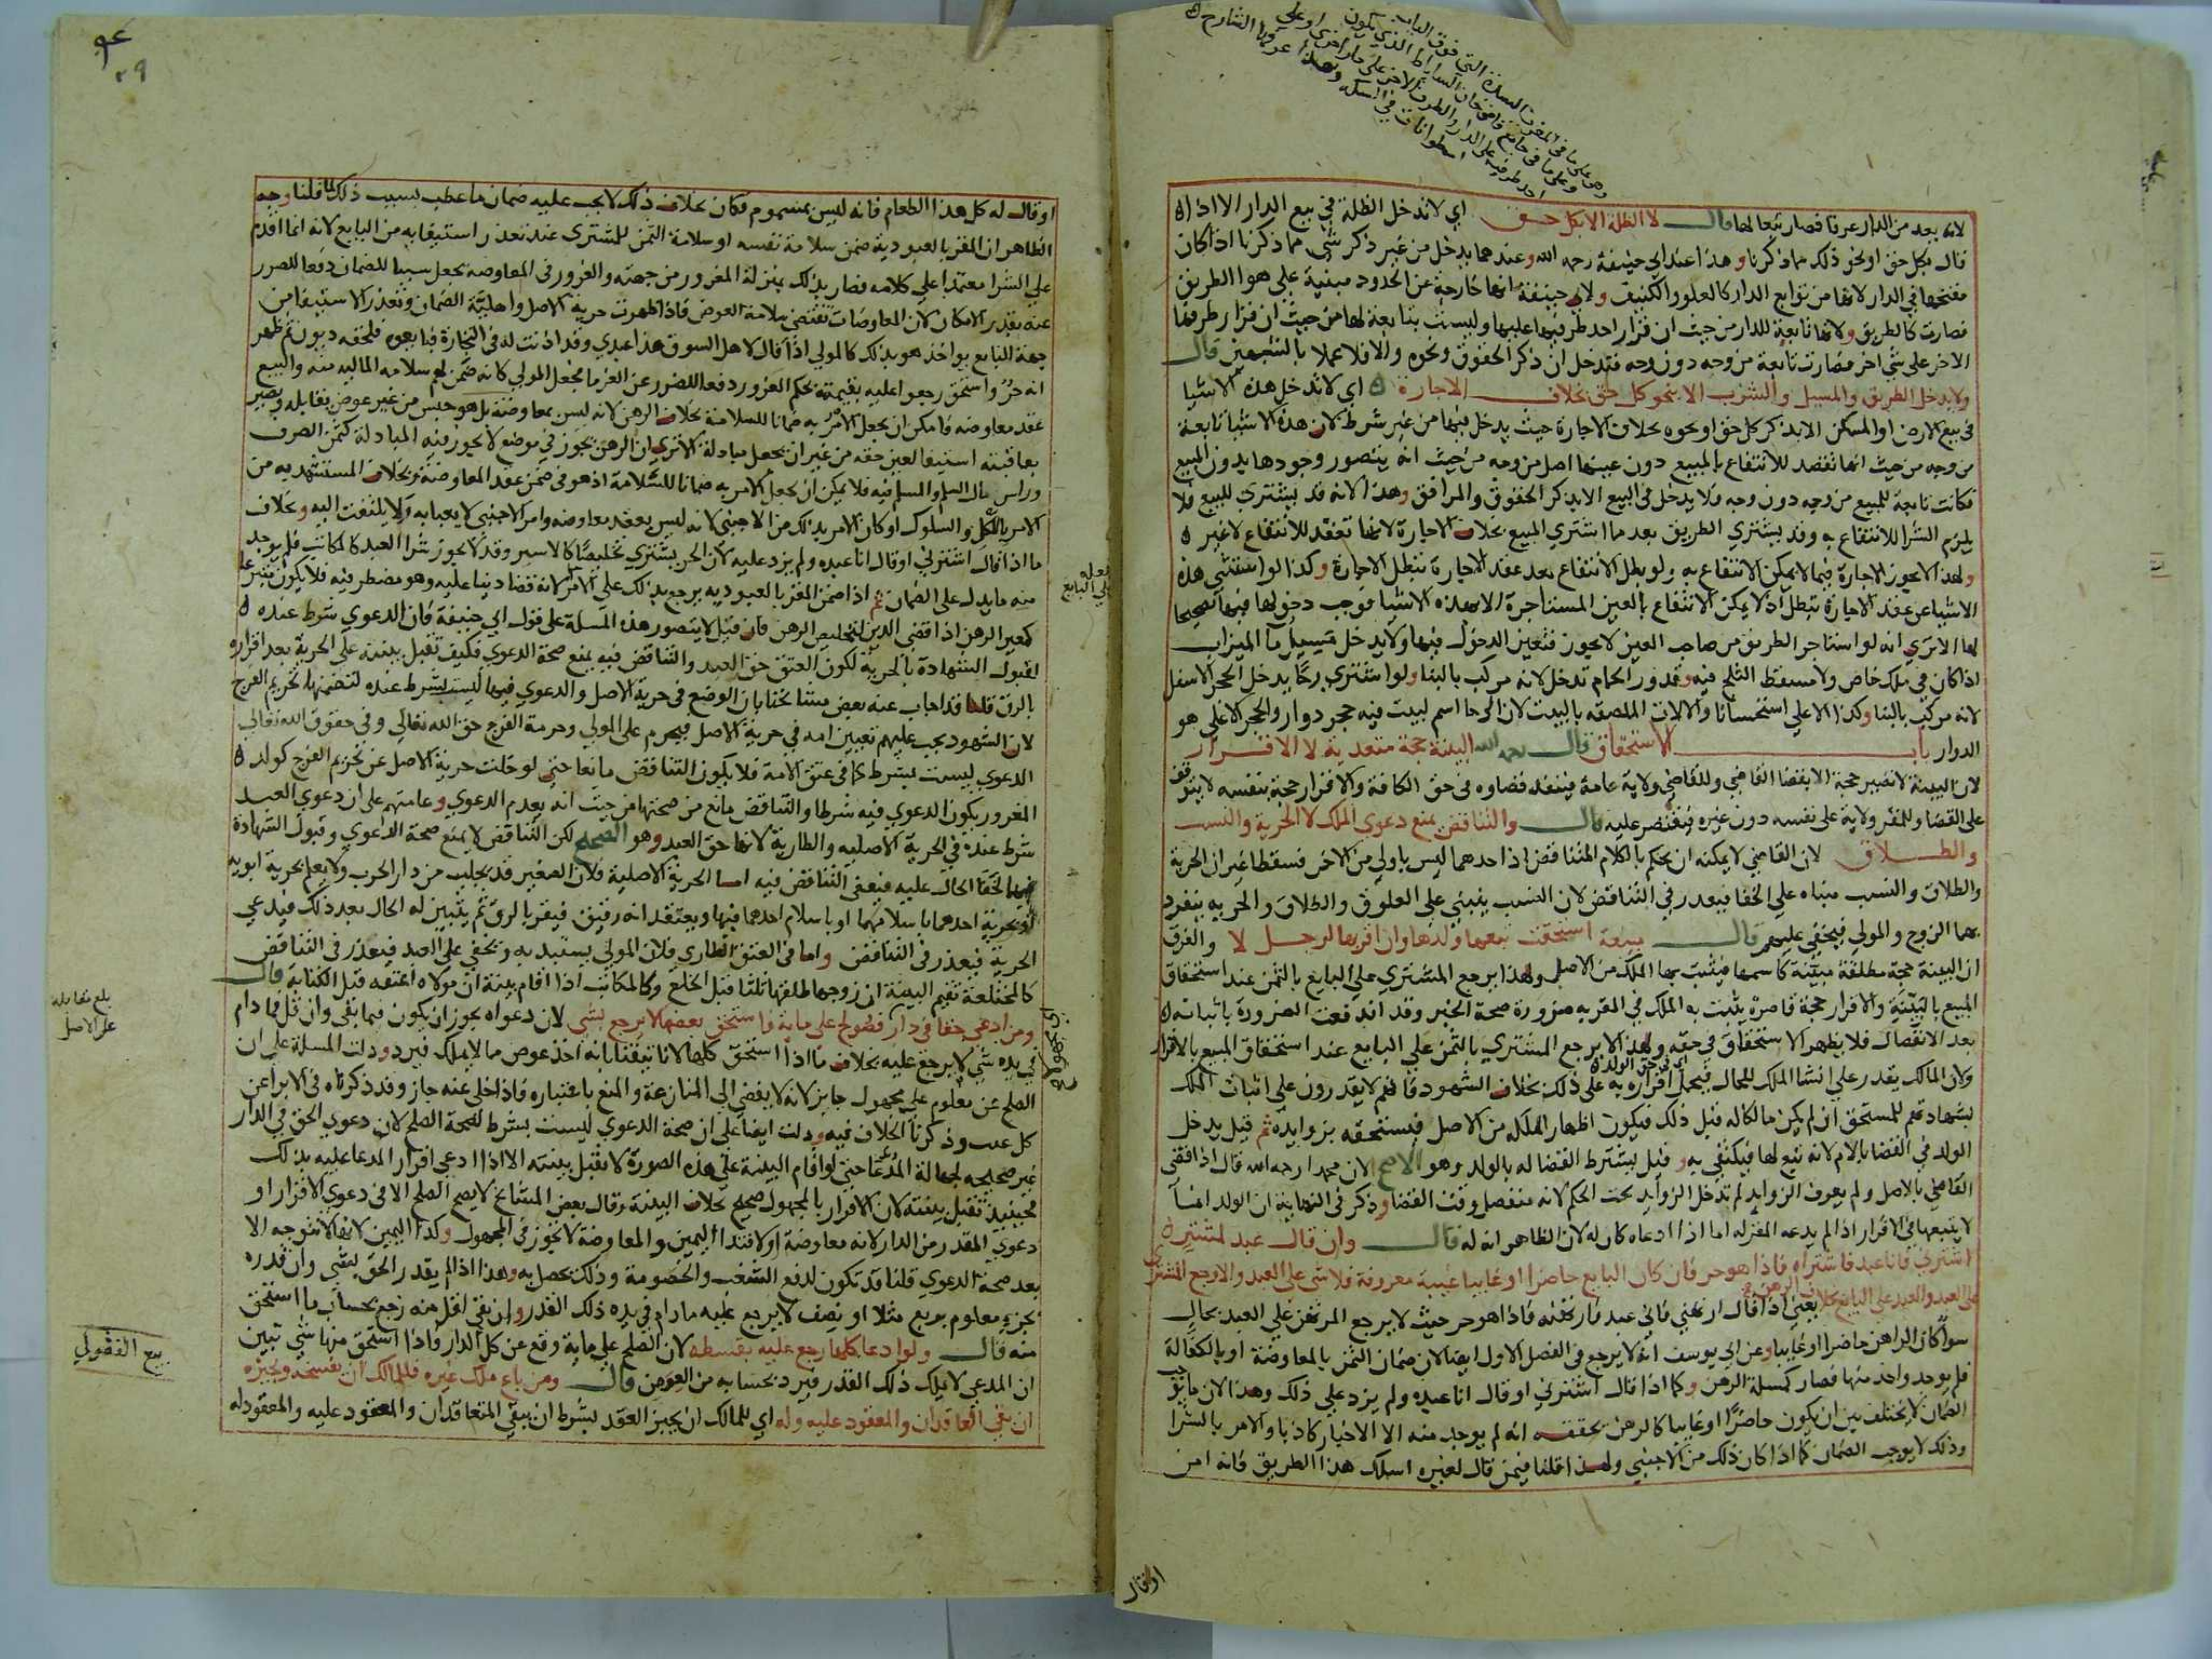 لانه يعد من الدار عرفا فصار تبعا لها قال لا الظلة الا بكل حق اي لا تدخل الظلة في بيع الدار الا اذا
قال بكل حق او نحو ذلك مما ذكرنا وهذا عند ابي حنيفة رحمه الله وعندهما يدخل من غير ذكر شي مما ذكرنا اذا كان
مفتحها في الدار لانها من توابع الدار كالعلو والكنيف ولابي حنيفة انها خارجة عن الحدود مبنية على هوا الطريق
فصارت كالطريق ولانها تابعة للدار من حيث ان قرار احد طرفيها عليها وليست بتابعة لها من حيث ان قرار طرفها
الاخر على شي اخر فصارت تابعة من وجه دون وجه فتدخل ان ذكر الحقوق ونحوه والا فلا عملا بالشبهين قال
ولا يدخل الطريق والمسيل والشرب الا بنحو كل حق بخلاف الاجارة اي لا تدخل هذه الاشيا
في بيع الارض او المسكن الا بذكر كل حق او نحوه بخلاف الاجارة حيث يدخل فيها من غير شرط لان هذه الاشيا تابعة
من وجه من حيث انها تقصد للانتفاع بالمبيع دون عينها اصل من وجه من حيث انه يتصور وجودها بدون المبيع
فكانت تابعة للمبيع من وجه دون وجه فلا يدخل في البيع الا بذكر الحقوق والمرافق وهذا لانه قد يشتري للبيع فلا
يلزم الشرا للانتفاع به وقد يشتري الطريق بعد ما اشتري المبيع بخلاف الاجارة لانها تعقد للانتفاع لا غير
ولهذا لا يجوز الاجارة فيما لا يمكن الانتفاع به ولو بطل الانتفاع بعد عقد الاجارة تبطل الاجارة وكذا لو استثني هذه
الاشيا عن عقد الاجارة تبطل اذ لا يمكن الانتفاع بالعين المستاجرة الا بهذه الاشيا فوجب دخولها فيها تصحيحا
لها الا تري انه لو استاجر الطريق من صاحب العين لا يجوز فتعين الدخول فيها ولا يدخل مسيل ما الميزاب
اذا كان في ملك خاص ولا مسقط الثلج فيه وقدور الحمام تدخل لانه مركب بالبنا ولو اشتري رحا يدخل الحجر الاسفل
لانه مركب بالبنا وكذا الاعلي استحسانا والالات الملصقة بالبيت لان الرحا اسم لبيت فيه حجر دوار والحجر الاعلي هو
الدوار باب الاستحقاق قال رحمه الله البينة حجة متعدية لا الاقرار
لان البينة لا تصير حجة الا بقضا القاضي وللقاضي ولاية عامة فينفذ قضاوه في حق الكافة والاقرار حجة بنفسه لا يتوقف
على القضا وللمقر ولاية على نفسه دون غيره فيقتصر عليه قال والتناقض يمنع دعوي الملك لا الحرية والنسب
والطلاق لان القاضي لا يمكنه ان يحكم بالكلام المتناقض اذ احدهما ليس باولي من الاخر فسقطا غير ان الحرية
والطلاق والنسب مبناه على الخفا فيعذر في التناقض لان النسب يبتني على العلوق والطلاق والحرية ينفرد
بهما الزوج والمولي فيخفي عليهم قال مبيعة استحقت تبعها ولدها وان اقر بها لرجل لا والفرق
ان البينة حجة مطلقة مبينة كاسمها فيثبت بها الملك من الاصل ولهذا يرجع المشتري على البايع بالثمن عند استحقاق
المبيع بالبينة والاقرار حجة قاصرة يثبت به الملك في المقر به ضرورة صحة الخبر وقد اندفعت الضرورة باثباته
بعد الانفصال فلا يظهر الاستحقاق في حقه ولهذا لا يرجع المشتري بالثمن على البايع عند استحقاق المبيع بالاقرار
ولان المالك يقدر على انشا الملك للحال فيحمل اقراره به على ذلك بخلاف الشهود فانهم لا يقدرون على اثبات الملك
بشهادتهم للمستحق ان لم يكن مالكا له قبل ذلك فيكون اظهار الملكه من الاصل فيستحقه بزوايده ثم قيل يدخل
الولد في القضا بالام لانه تبع لها فيكتفي به وقيل يشترط القضا له بالولد وهو الاصح لان محمدا رحمه الله قال اذا قضى
القاضي بالاصل ولم يعرف الزوايد لم تدخل الزوايد تحت الحكم لانه منفصل وقت القضا وذكر في النهاية ان الولد انما
لا يتبعها في الاقرار اذا لم يدعه المقر له اما اذا ادعاه كان له لان الظاهر انه له قال وان قال عبد لمشتر
اشترني فانا عبد فاشتراه فاذا هو حر فان كان البايع حاضرا او غايبا غيبة معروفة فلا شي على العبد والا رجع المشتري
على العبد والعبد على البايع بخلاف الرهن
يعني اذا قال ارتهني فاني عبد فارتهنه فاذا هو حر حيث لا يرجع المرتهن على العبد بحال
سوا كان الراهن حاضرا او غايبا وعن ابي يوسف انه لا يرجع في الفصل الاول ايضا لان ضمان الثمن بالمعاوضة او بالكفالة
فلم يوجد واحد منها فصار كمسلة الرهن وكما اذا قال اشترني او قال انا عبده ولم يزد على ذلك وهذا لان ما يوجب
الضمان لا يختلف بين ان يكون حاضرا او غايبا كالرهن تحققه انه لم يوجد منه الا الاخبار كاذبا والامر بالشرا
وذلك لا يوجب الضمان كما اذا كان ذلك من الاجنبي ولهذا قلنا فيمن قال لغيره اسلك هذا الطريق فانه امن
او قال
او قال له كل هذا الطعام فانه ليس بمسموم فكان بخلاف ذلك لا يجب عليه ضمان ما عطب بسبب ذلك لما قلنا وجه
الظاهر ان المقر بالعبودية ضمن سلامة نفسه او سلامة الثمن للمشتري عند تعذر استيفايه من البايع لانه انما اقدم
على الشرا معتمدا على كلامه فصار بذلك بمنزلة المغرور من جهته والغرور في المعاوضة يجعل سببا للضمان دفعا للضرر
عنه بقدر الامكان لان المعاوضات تقتضي سلامة العوض فاذا ظهرت حرية الاصل واهلية الضمان وتعذر الاستيفا من
جهة البايع يواخذ هو بذلك كالمولي اذا قال لاهل السوق هذا عبدي وقد اذنت له في التجارة فبايعوه فلحقه ديون ثم ظهر
انه حر واستحق رجعوا عليه بقيمته بحكم الغرور دفعا للضرر عن الغرما فجعل المولي كانه ضمن لهم سلامة المالية منه والبيع
عقد معاوضة فامكن ان يجعل الامر به ضمانا للسلامة بخلاف الرهن لانه ليس بمعاوضة بل هو حبس من غير عوض يقابله ويصير
بعاقبته استيفا لعين حقه من غير ان يجعل مبادلة الا تري ان الرهن يجوز في موضع لا يجوز فيه المبادلة كثمن الصرف
وراس مال السلم والمسلم فيه فلا يمكن ان يجعل الامر به ضمانا للسلامة اذ هو في ضمن عقد المعاوضة وبخلاف المستشهد به من
الامر بالاكل والسلوك او كان الامر بذلك من الاجنبي لانه ليس بعقد معاوضة وامر الاجنبي لا يعبا به ولا يلتفت اليه وبخلاف
ما اذا قال اشترني او قال انا عبده ولم يزد عليه لان الحر يشتري تخليصا كالاسير وقد لا يجوز شرا العبد كالمكاتب فلم يوجد
منه ما يدل على الضمان ثم اذا ضمن المقر بالعبودية يرجع بذلك على الامر لانه قضا دينا عليه وهو مضطر فيه فلا يكون متبرعا
كمعير الرهن اذا قضى الدين لتخليص الرهن فان قيل لا يتصور هذه المسلة على قول ابي حنيفة فان الدعوي شرط عنده
لقبول الشهادة بالحرية لكون العتق حق العبد والتناقض فيه يمنع صحة الدعوي فكيف تقبل بينته على الحرية بعد اقراره
بالرق قلنا قد اجاب عنه بعض مشايخنا بان الوضع في حرية الاصل والدعوي فيها ليست بشرط عنده لتضمنها تحريم الفرج
لان الشهود يجب عليهم تعيين امه في حرية الاصل فيحرم على المولي وحرمة الفرج حق الله تعالي وفي حقوق الله تعالي
الدعوي ليست بشرط كما في عتق الامة فلا يكون التناقض مانعا حتي لو خلت حرية الاصل عن تحريم الفرج كولد
المغرور يكون الدعوي فيه شرطا والتناقض مانع من صحتها من حيث انه يعدم الدعوي وعامتهم على ان دعوي العبد
شرط عنده في الحرية الاصلية والطارية لانها حق العبد وهو الصحيح لكن التناقض لا يمنع صحة الدعوي وقبول الشهادة
فيها لخفا الحال عليه فيعفي التناقض فيه اما الحرية الاصلية فلان الصغير قد يجلب من دار الحرب ولا يعلم بحرية ابويه
او بحرية احدهما باسلامهما او باسلام احدهما فيها ويعتقد انه رقيق فيقر بالرق ثم يتبين له الحال بعد ذلك فيدعي
الحرية فيعذر في التناقض واما في العتق الطاري فلان المولي يستبد به ويخفي على العبد فيعذر في التناقض
كالمختلعة تقيم البينة ان زوجها طلقها ثلثا قبل الخلع وكالمكاتب اذا اقام بينة ان مولاه اعتقه قبل الكتابة قال
ومن ادعي حقا في دار فصولح على ماية فاستحق بعضها لا يرجع بشي لان دعواه يجوز ان يكون فيما بقي وان قل فما دام
في يده شي لا يرجع عليه بخلاف ما اذا استحق كلها لانا تيقنا بانه اخذ عوض ما لا يملك فيرد ودلت المسلة على ان
الصلح عن معلوم على مجهول جايز لانه لا يفضي الى المنازعة والمنع باعتباره فاذا خلى عنه جاز وقد ذكرناه في الابرا عن
كل عيب وذكرنا الخلاف فيه ودلت ايضا على ان صحة الدعوي ليست بشرط لصحة الصلح لان دعوي الحق في الدار
غير صحيحة لجهالة المدعا حتي لو اقام البينة على هذه الصورة لا يقبل بينته الا اذا ادعي اقرار المدعا عليه بذلك
فحينيذ تقبل بينته لان الاقرار بالمجهول صحيح بخلاف البينة وقال بعض المشايخ لا يصح الصلح الا في دعوي الاقرار او
دعوي المقدر من الدار لانه معاوضة او لافتدا اليمين والمعاوضة لا تجوز في المجهول وكذا اليمين لانها لا تتوجه الا
بعد صحة الدعوي قلنا قد تكون لدفع الشغب والخصومة وذلك يحصل به وهذا اذا لم يقدر الحق بشي وان قدره
بجزء معلوم بربع مثلا او نصف لا يرجع عليه ما دام في يده ذلك القدر وان بقي اقل منه رجع بحساب ما استحق
منه قال ولو ادعا كلها رجع عليه بقسطه لان الصلح على ماية وقع عن كل الدار فاذا استحق منها شي تبين
ان المدعي لا يملك ذلك القدر فيرد بحسابه من العوض قال ومن باع ملك غيره فللمالك ان يفسخه ويجيزه
ان بقي العاقدان والمعقود عليه وله اي للمالك ان يجيز العقد بشرط ان يبقي المتعاقدان والمعقود عليه والمعقود له
لعله
على البايع
بلغ مقابلة
على الاصل
بيع الفضولي